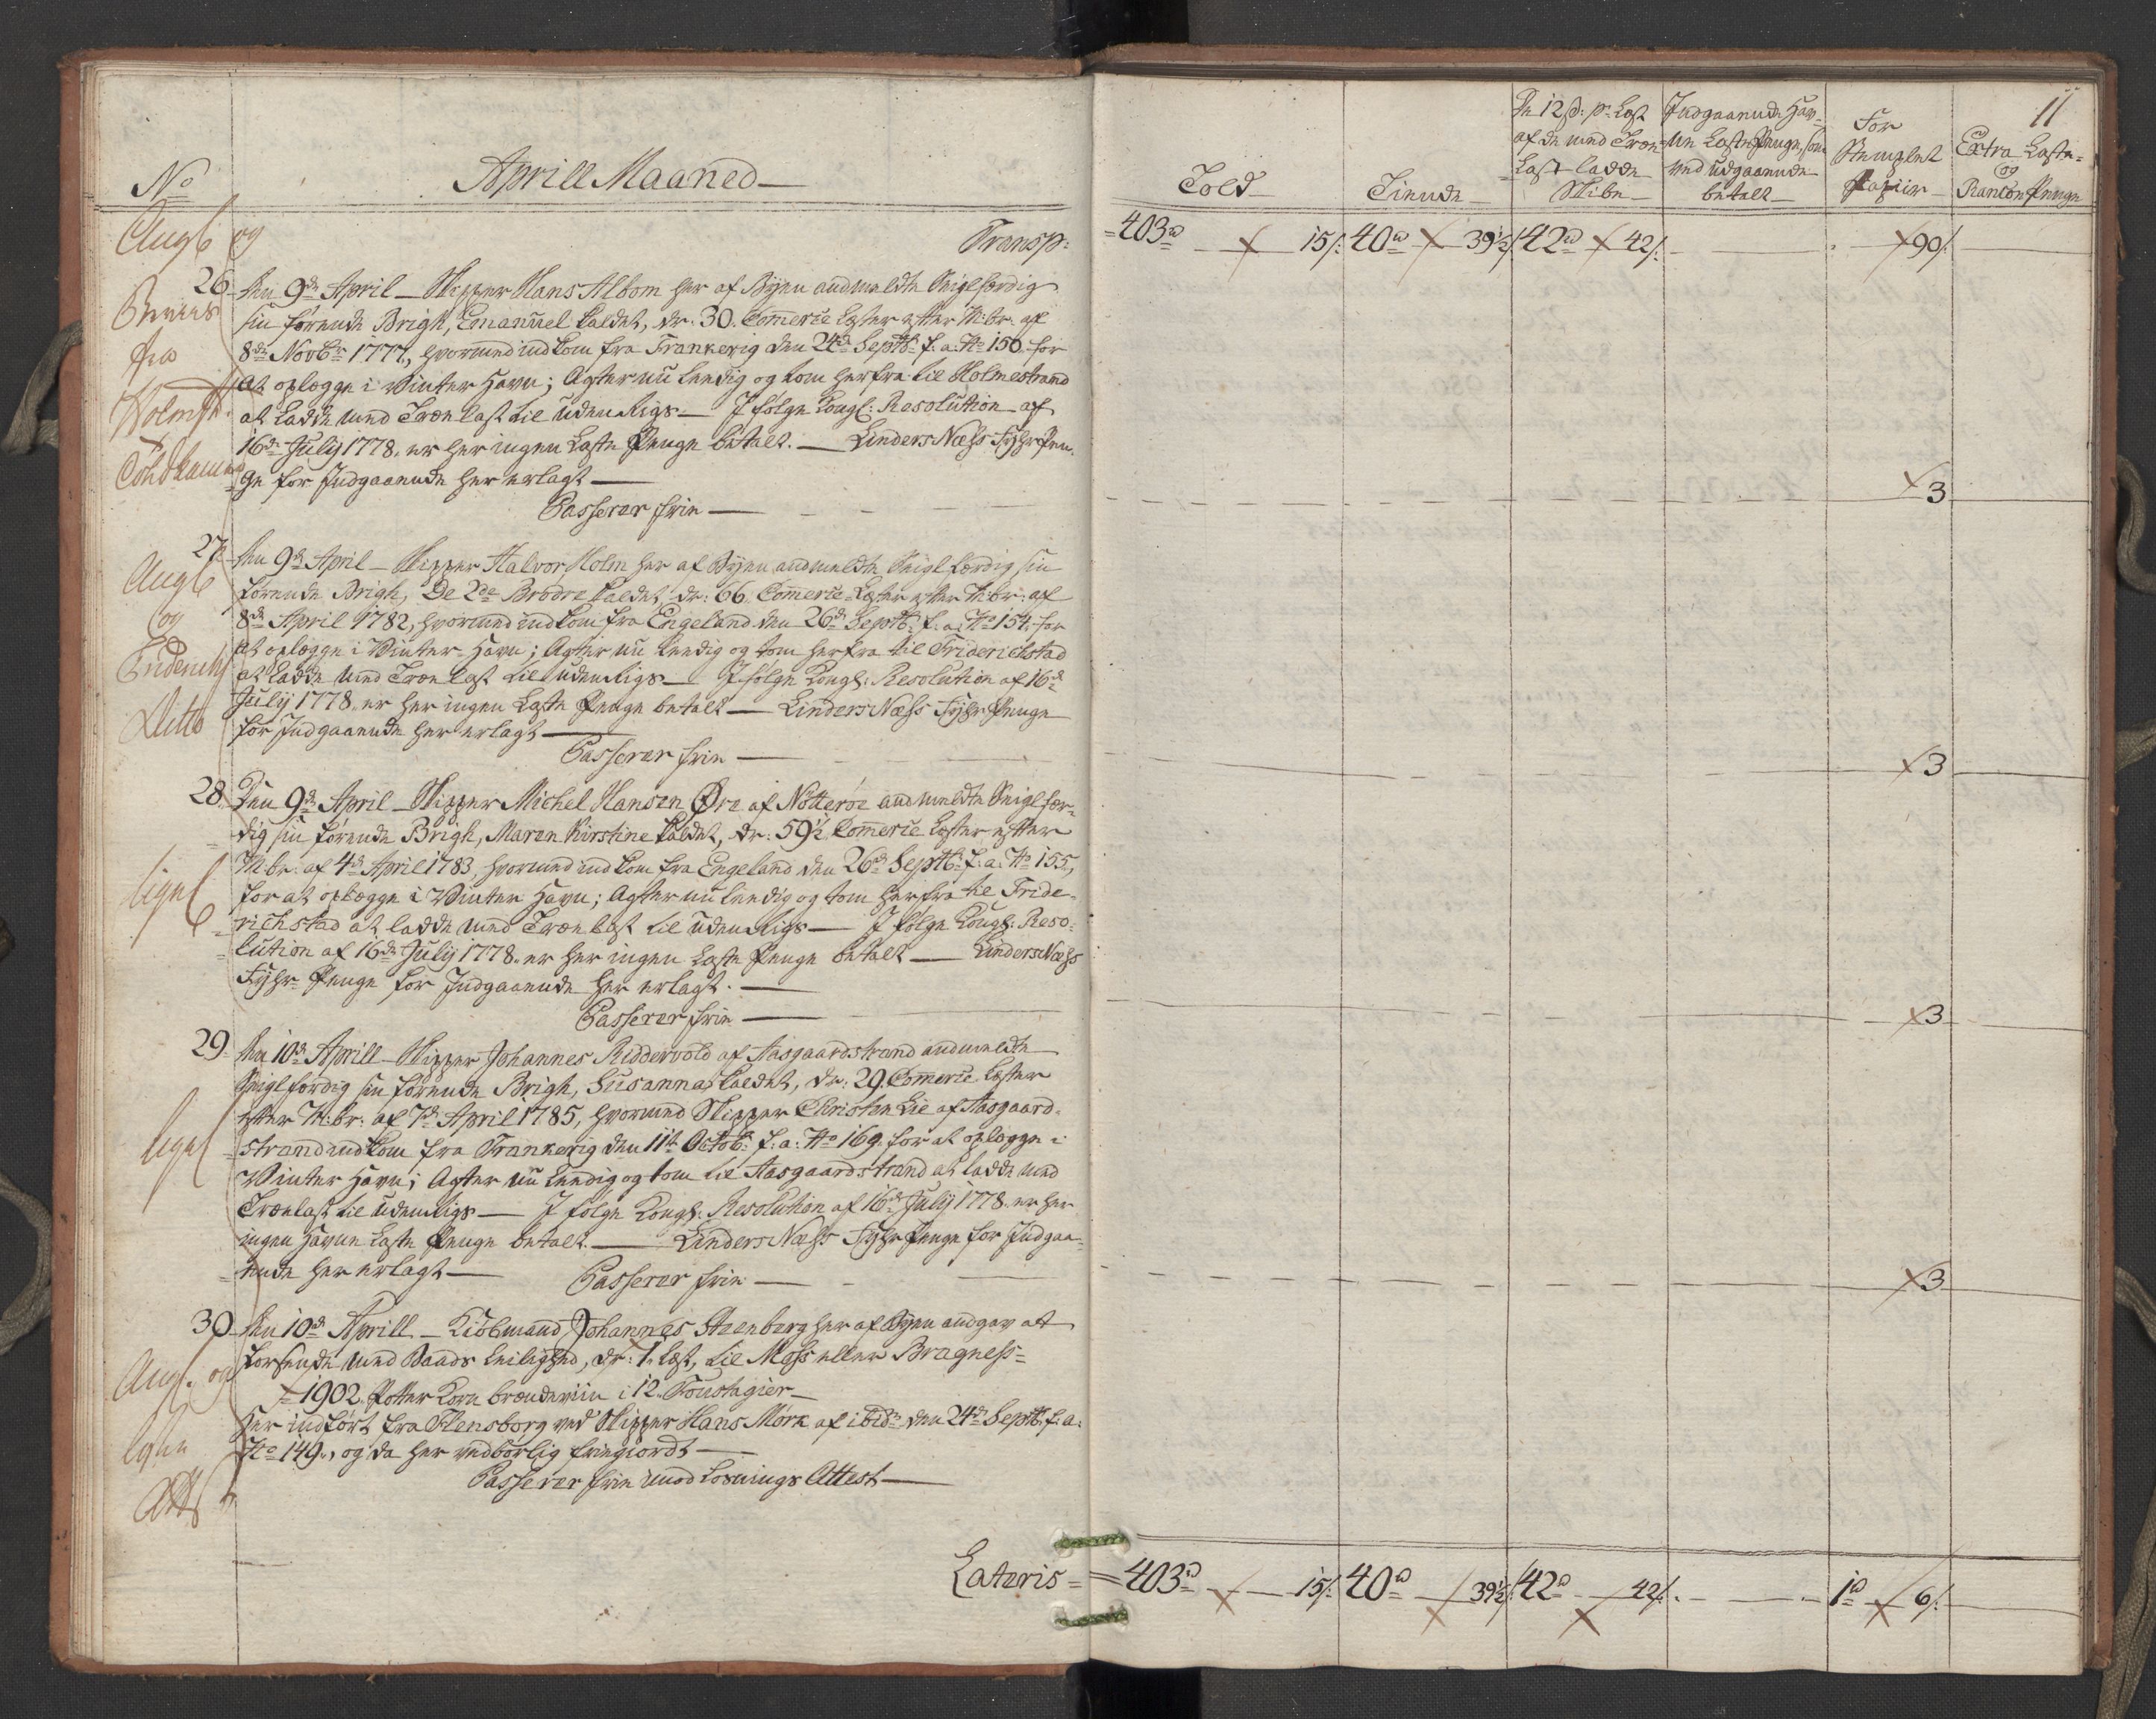 No
Aprill Maaned
Transp:
26. Den 9de April Skipper Hans Albom her af Byen andmeldte Seiglfærdig
sin førende Brigh, Emanuel kaldet, dr: 30. Comerce Læster efter M:br: af
8de Novbr 1777, hvormed indkom fra Frankerig den 24de Septbr f. a. No 150 for
at oplægge i Vinter Havn; Agter nu leedig og tom herfra til Holmestrand
at ladde med Træelast til udenrigs I følge Kongl: Resolution af
16de Julij 1778. er her ingen Læste Penge betalt. LindersNæss Fyhr Pen-
ge for Indgaaende her erlagt
Passerer frie
27. Den 9de April Skipper Halvor Holm her af Byen andmeldte Seiglfærdig sin
førende Brigh, De 2de Brødre kaldet, dr: 66. Comerce Læster efter M:br: af
8de April 1782, hvormed indkom fra Engeland den 26de Septb: f. a. No 154. for
at oplægge i Vinter-Havn; Agter nu leedig og tom herfra til Friderichstad
at ladde med Træelast til udenrigs I følge Kongl: Resolution af 16de
Julij 1778. er her ingen Læste Penge betalt LindersNæss Fyhr Penge
for Indgaaende her erlagt
Passerer frie
28. Den 9de April Skipper Michel Hansen Øre af Nøtterøe andmeldte Seiglfær-
dig sin førende Brigh, Maren Kirstine kaldet, dr: 59½ Comerce Læster efter
M:br: af 4de April 1783, hvormed indkom fra Engeland den 26de Septb: f. a. No 155,
for at oplægge i Vinter Havn; Agter nu leedig og tom herfra til Fride-
richstad at ladde med Træelast til udenrigs I følge Kongl: Reso-
lution af 16de Julij 1778. er her ingen Læste Penge betalt LindersNæss
Fyhr Penge for Indgaaende her erlagt.
Passerer frie
29. Den 10de Aprill Skipper Johannes Riddervold af Aasgaardstrand andmeldte
Seiglfærdig sin førende Brigh, Susanna kaldet, dr: 29. Comerce Læster
efter M:br: af 7de April 1785, hvormed Skipper Christen Lie af Aasgaard-
strand indkom fra Frankerig den 11te Octob: f. a: No 169. for at oplægge i
Vinter Havn; Agter nu leedig og tom til Aasgaardstrand at ladde med
Træelast til udenrigs I følge Kongl: Resolution af 16de Julij 1778. er her
ingen Havne Læste Penge betalt. LindersNæss Fyhr Penge for Indgaa-
ende her erlagt
Passerer frie
30. Den 10de Aprill Kiøbmand Johannes Steenberg her af Byen andgav at
forsende med Baads leilighed, dr: 1. Læst, til Moss eller Bragness
1902. Potter Korn brændeviin i 12. Foustagier
Her indført fra Flensborg ved Skipper Hans Mørk af ibidm den 24de Septb: f: a:
No 149., og da her vedbørlig friegiordt
Passerer frie imod Losnings Attest
Lateris
11
Told
Tiende
De 12 s: pr Læst
af de med Træe-
Last ladde
Skibe
Indgaaende Hav-
ne Læste Penge, som
ved udgaaende
betalt
For
Stemplet
Papiir
Extra Læste
og
Rantzon Penge
403 15 40 39½ 42 42 90
3
3
3
3
403 15 40 39½ 42 42 1 6